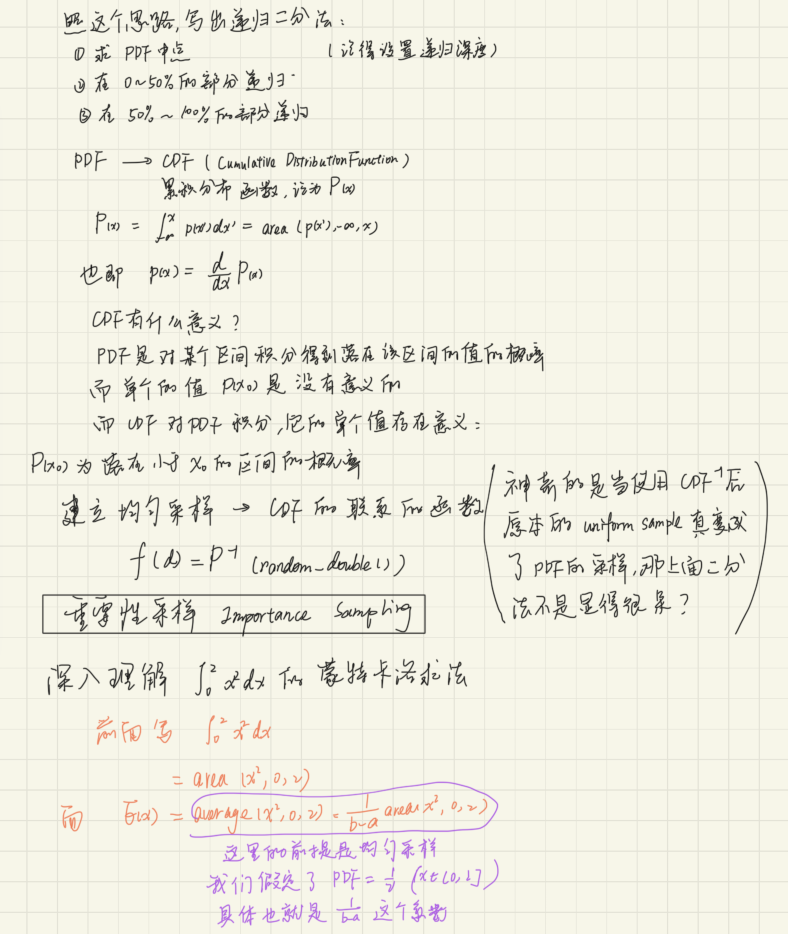 照这个思路,写出递归二分法:
① 求 PDF 中点 (记得设置递归深度)
② 在 0~50% 的部分递归
③ 在 50% ~ 100% 的部分递归
PDF → CDF (Cumulative Distribution Function)
累积分布函数,记为 P(x)
P(x) = ∫_{-∞}^{x} p(x')dx' = area (p(x'),-∞,x)
也即 p(x) = d/dx P(x)
CDF有什么意义?
PDF是对某个区间积分得到落在该区间的值的概率
而单个的值 p(x₀)是没有意义的
而 CDF 对PDF 积分,它的单个值存在意义:
P(x₀)为落在小于 x₀ 的区间的概率
建立均匀采样 → CDF 的联系的函数
f(d) = P⁻¹ (random_double())
(神奇的是当使用 CDF⁻¹后
原本的 uniform sample 真变成
了 PDF的采样,那上面二分
法不是显得很呆?)
重要性采样 Importance Sampling
深入理解 ∫₀² x²dx 的蒙特卡洛求法
前面写 ∫₀² x²dx
= area (x², 0, 2)
而 E(x) = average(x², 0, 2) = 1/(b-a) area(x², 0, 2)
这里的前提是均匀采样
我们假定了 PDF = 1/2 (x∈[0,2])
具体也就是 1/(b-a) 这个系数